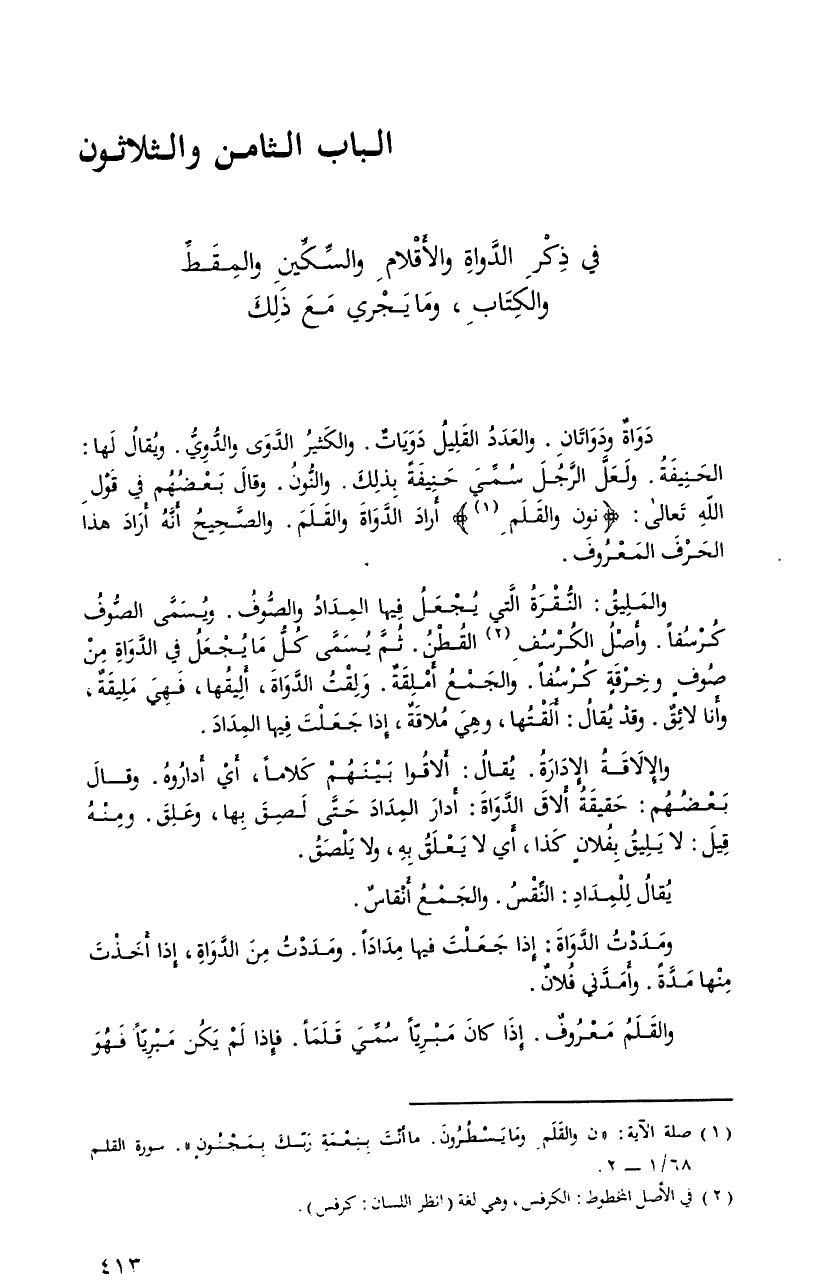 الباب الثامن والثلاثون
في ذِكْرِ الدَّواةِ والأَقْلامِ والسِّكِّينِ والمِقَطِّ
والكِتَابِ ، ومَا يَجْري مَعَ ذَلِكَ
دَوَاةٌ ودَوَاتَانِ . والعَدَدُ القَلِيلُ دَوَيَاتٌ . والكَثيرُ الدَّوَى والدُّوِيُّ . ويُقالُ لَها :
الحَنِيفَةُ . ولَعَلَّ الرَّجُلَ سُمِّيَ حَنِيفَةً بِذلِكَ . والنُّونُ . وقالَ بَعْضُهُم في قَوْلِ
اللّهِ تَعالىٰ : ﴿ نون والقَلَمِ (١) ﴾ أرادَ الدَّوَاةَ والقَلَمَ . والصَّحِيحُ أنَّهُ أرَادَ هذا
الحَرْفَ المَعْرُوفَ .
والمَلِيقُ : النُّقْرَةُ الَّتي يُجْعَلُ فِيها المِدَادُ والصُّوفُ . ويُسَمَّى الصُّوفُ
كُرْسُفاً . وأَصْلُ الكُرْسُفِ (٢) القُطْنُ . ثُمَّ يُسَمَّى كُلُّ مَا يُجْعَلُ في الدَّوَاةِ مِنْ
صُوفٍ وخِرْقَةٍ كُرْسُفاً . والجَمْعُ أَمْلِقَةٌ . وَلِقْتُ الدَّوَاةَ ، أَلِيقُها ، فَهِيَ مَلِيقَةٌ ،
وأنا لائِقٌ . وقدْ يُقالُ : أَلَقْتُها ، وهِيَ مُلاقَةٌ ، إذا جَعَلْتَ فِيها المِدَادَ .
والإلَاقَةُ الإدَارَةُ . يُقالُ : ألاقُوا بَيْنَهُمْ كَلاماً ، أيْ أدارُوهُ . وقالَ
بَعْضُهُم : حَقيقَةُ ألاقَ الدَّوَاةَ : أدارَ المِدَادَ حَتَّى لَصِقَ بِها ، وعَلِقَ . ومِنْهُ
قِيلَ : لا يَلِيقُ بِفُلانٍ كَذا ، أي لا يَعْلَقُ بِهِ ، ولا يَلْصَقُ .
يُقالُ لِلْمِدَادِ : النِّقْسُ . والجَمْعُ أَنْقاسٌ .
ومَدَدْتُ الدَّوَاةَ : إذا جَعَلْتَ فيها مِدَاداً . ومَدَدْتُ مِنَ الدَّوَاةِ ، إذا أَخَذْتَ
مِنْها مَدَّةً . وأَمَدَّني فُلانٌ .
والقَلَمُ مَعْرُوفٌ . إذَا كانَ مَبْرِيّاً سُمِّيَ قَلَمَاً . فإذا لَمْ يَكُن مَبْرِيّاً فَهُوَ
(١) صلة الآية : «ن والقَلَمِ ومَا يَسْطُرُونَ . ما أَنْتَ بِنِعْمَةِ رَبِّكَ بِمَجْنُونٍ» . سورة القلم
٦٨/١ – ٢ .
(٢) في الأصل المخطوط : الكرفس ، وهي لغة (انظر اللسان : كرفس) .
٤١٣